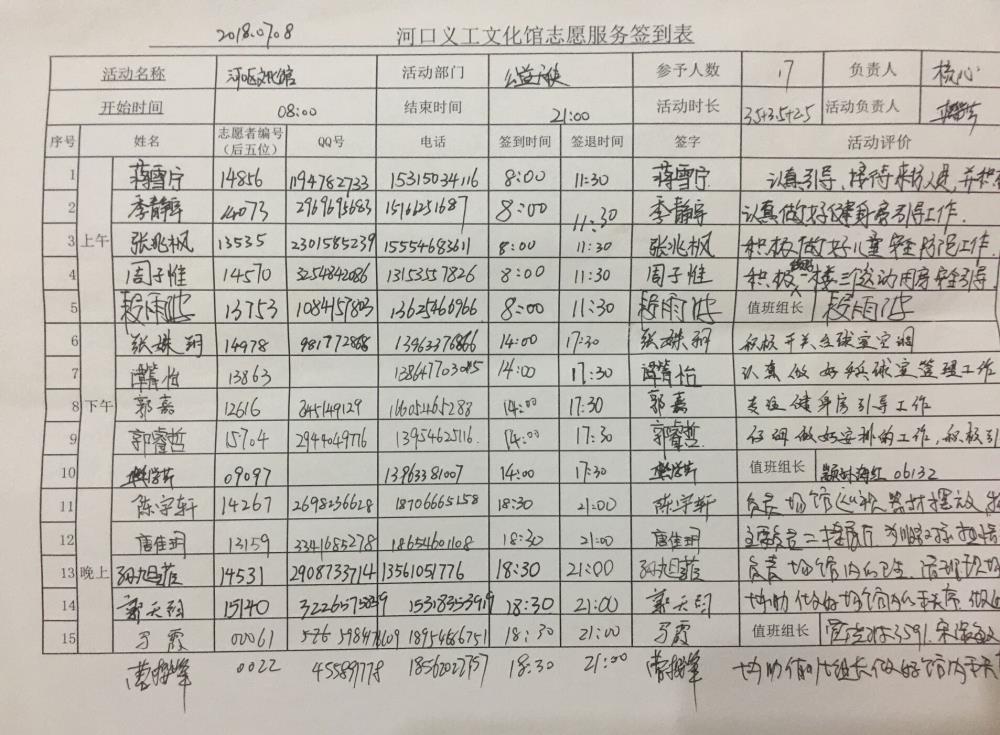 2018.07.08 河口义工文化馆志愿服务签到表
活动名称 河口区文化馆 活动部门 公益天使 参予人数 17 负责人 核心
开始时间 08:00 结束时间 21:00 活动时长 3.5+3.5+2.5 活动负责人
序号 姓名 志愿者编号（后五位） QQ号 电话 签到时间 签退时间 签字 活动评价
上午
1 蒋雪宁 14856 1194782733 15315034116 8:00 11:30 蒋雪宁 认真引导、接待来访人员,并积
2 李静 14073 2969695683 15161251687 8:00 11:30 李静 认真做好健身房引导工作.
3 张兆枫 13535 2301585239 15554683611 8:00 11:30 张兆枫 积极做好儿童安全防范工作
4 周子惟 14570 3254842086 13153557826 8:00 11:30 周子惟 积极 一楼三个活动用房安全引导
5 段雨 13753 1084157803 13625466966 8:00 11:30 段雨 值班组长 段雨
下午
6 张姝玥 14978 981772868 13963376866 14:00 17:30 张姝玥 积极开关乒球室空调
7 谭箐怡 13863 13864770 14:00 17:30 谭箐怡 认真做好乒球室管理工作
8 郭嘉 12616 845149129 16605465288 14:00 17:30 郭嘉 健身房引导工作
9 郭睿哲 15704 2944049776 13954625116 14:00 17:30 郭睿哲 做好安排的工作,积极引
10 09097 13963381007 14:00 17:30 值班组长 06132
晚上
11 陈宇轩 14267 2698236628 18706665158 18:30 21:00 陈宇轩 负责场馆巡视器材摆放,
12 唐佳玥 13159 3341685278 18654601108 18:30 21:00 唐佳玥 主要负责二楼展厅
13 14531 2908733714 13561051776 18:30 21:00 负责场馆内卫生
14 15140 15318353919 18:30 21:00 协助做好场馆内
15 00061 18954686751 18:30 21:00 值班组长 3591.
曹 0022 45589778 18562022757 18:30 21:00 曹 协助值班组长做好馆内